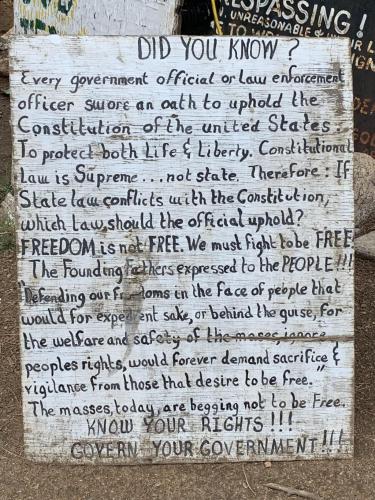 ESPASSING!
UNREASONABLE &
DID YOU KNOW?
Every government official or law enforcement
officer swore an oath to uphold the
Constitution of the united States:
To protect both Life & Liberty. Constitutional
Law is Supreme... not state. Therefore: If
State law conflicts with the Constitution,
which Law should the official uphold?
FREEDOM is not FREE. We must fight to be FREE
The Founding Fathers expressed to the PEOPLE!!!
"Defending our freedoms in the face of people that
would for expedient sake, or behind the guise, for
the welfare and safety of the mases, ignore
peoples rights, would forever demand sacrifice &
vigilance from those that desire to be free."
The masses, today, are begging not to be Free.
KNOW YOUR RIGHTS!!!
GOVERN YOUR GOVERNMENT!!!